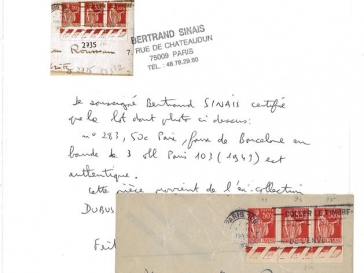 2735
BERTRAND SINAIS
7, RUE DE CHATEAUDUN
75009 PARIS
TÉL. : 48.78.29.80
Je soussigné Bertrand SINAIS certifie
que le lot dont photo ci dessus:
n° 283, 50c Paix, faux de Barcelone en
bande de 3 oll Paris 103 (1943) est
authentique.
Cette pièce provient de l'ex-collection
DUBUS
Fait
DE L'ENV